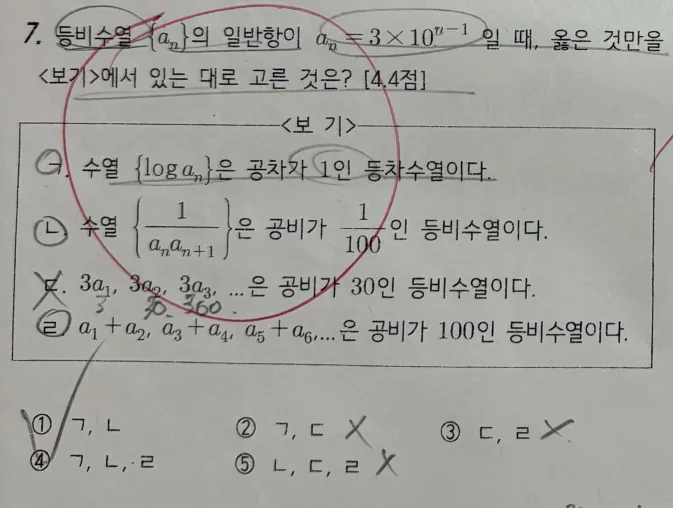 7. 등비수열 {aₙ}의 일반항이 aₙ = 3×10ⁿ⁻¹ 일 때, 옳은 것만을
<보기>에서 있는 대로 고른 것은? [4.4점]
<보 기>
ㄱ. 수열 {log aₙ}은 공차가 1인 등차수열이다.
ㄴ. 수열 {1/(aₙaₙ₊₁)}은 공비가 1/100인 등비수열이다.
ㄷ. 3a₁, 3a₂, 3a₃, …은 공비가 30인 등비수열이다.
3 30 300
ㄹ. a₁+a₂, a₃+a₄, a₅+a₆,…은 공비가 100인 등비수열이다.
① ㄱ, ㄴ ② ㄱ, ㄷ ③ ㄷ, ㄹ
④ ㄱ, ㄴ, ㄹ ⑤ ㄴ, ㄷ, ㄹ